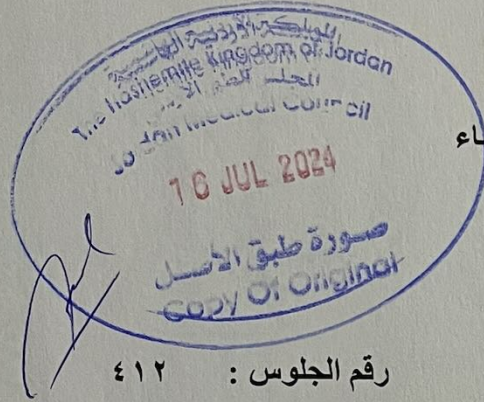 المملكة الأردنية الهاشمية
The Hashemite Kingdom of Jordan
المجلس الطبي
Jordan Medical Council
اء
16 JUL 2024
صورة طبق الاصل
Copy Of Original
رقم الجلوس : ٤١٢